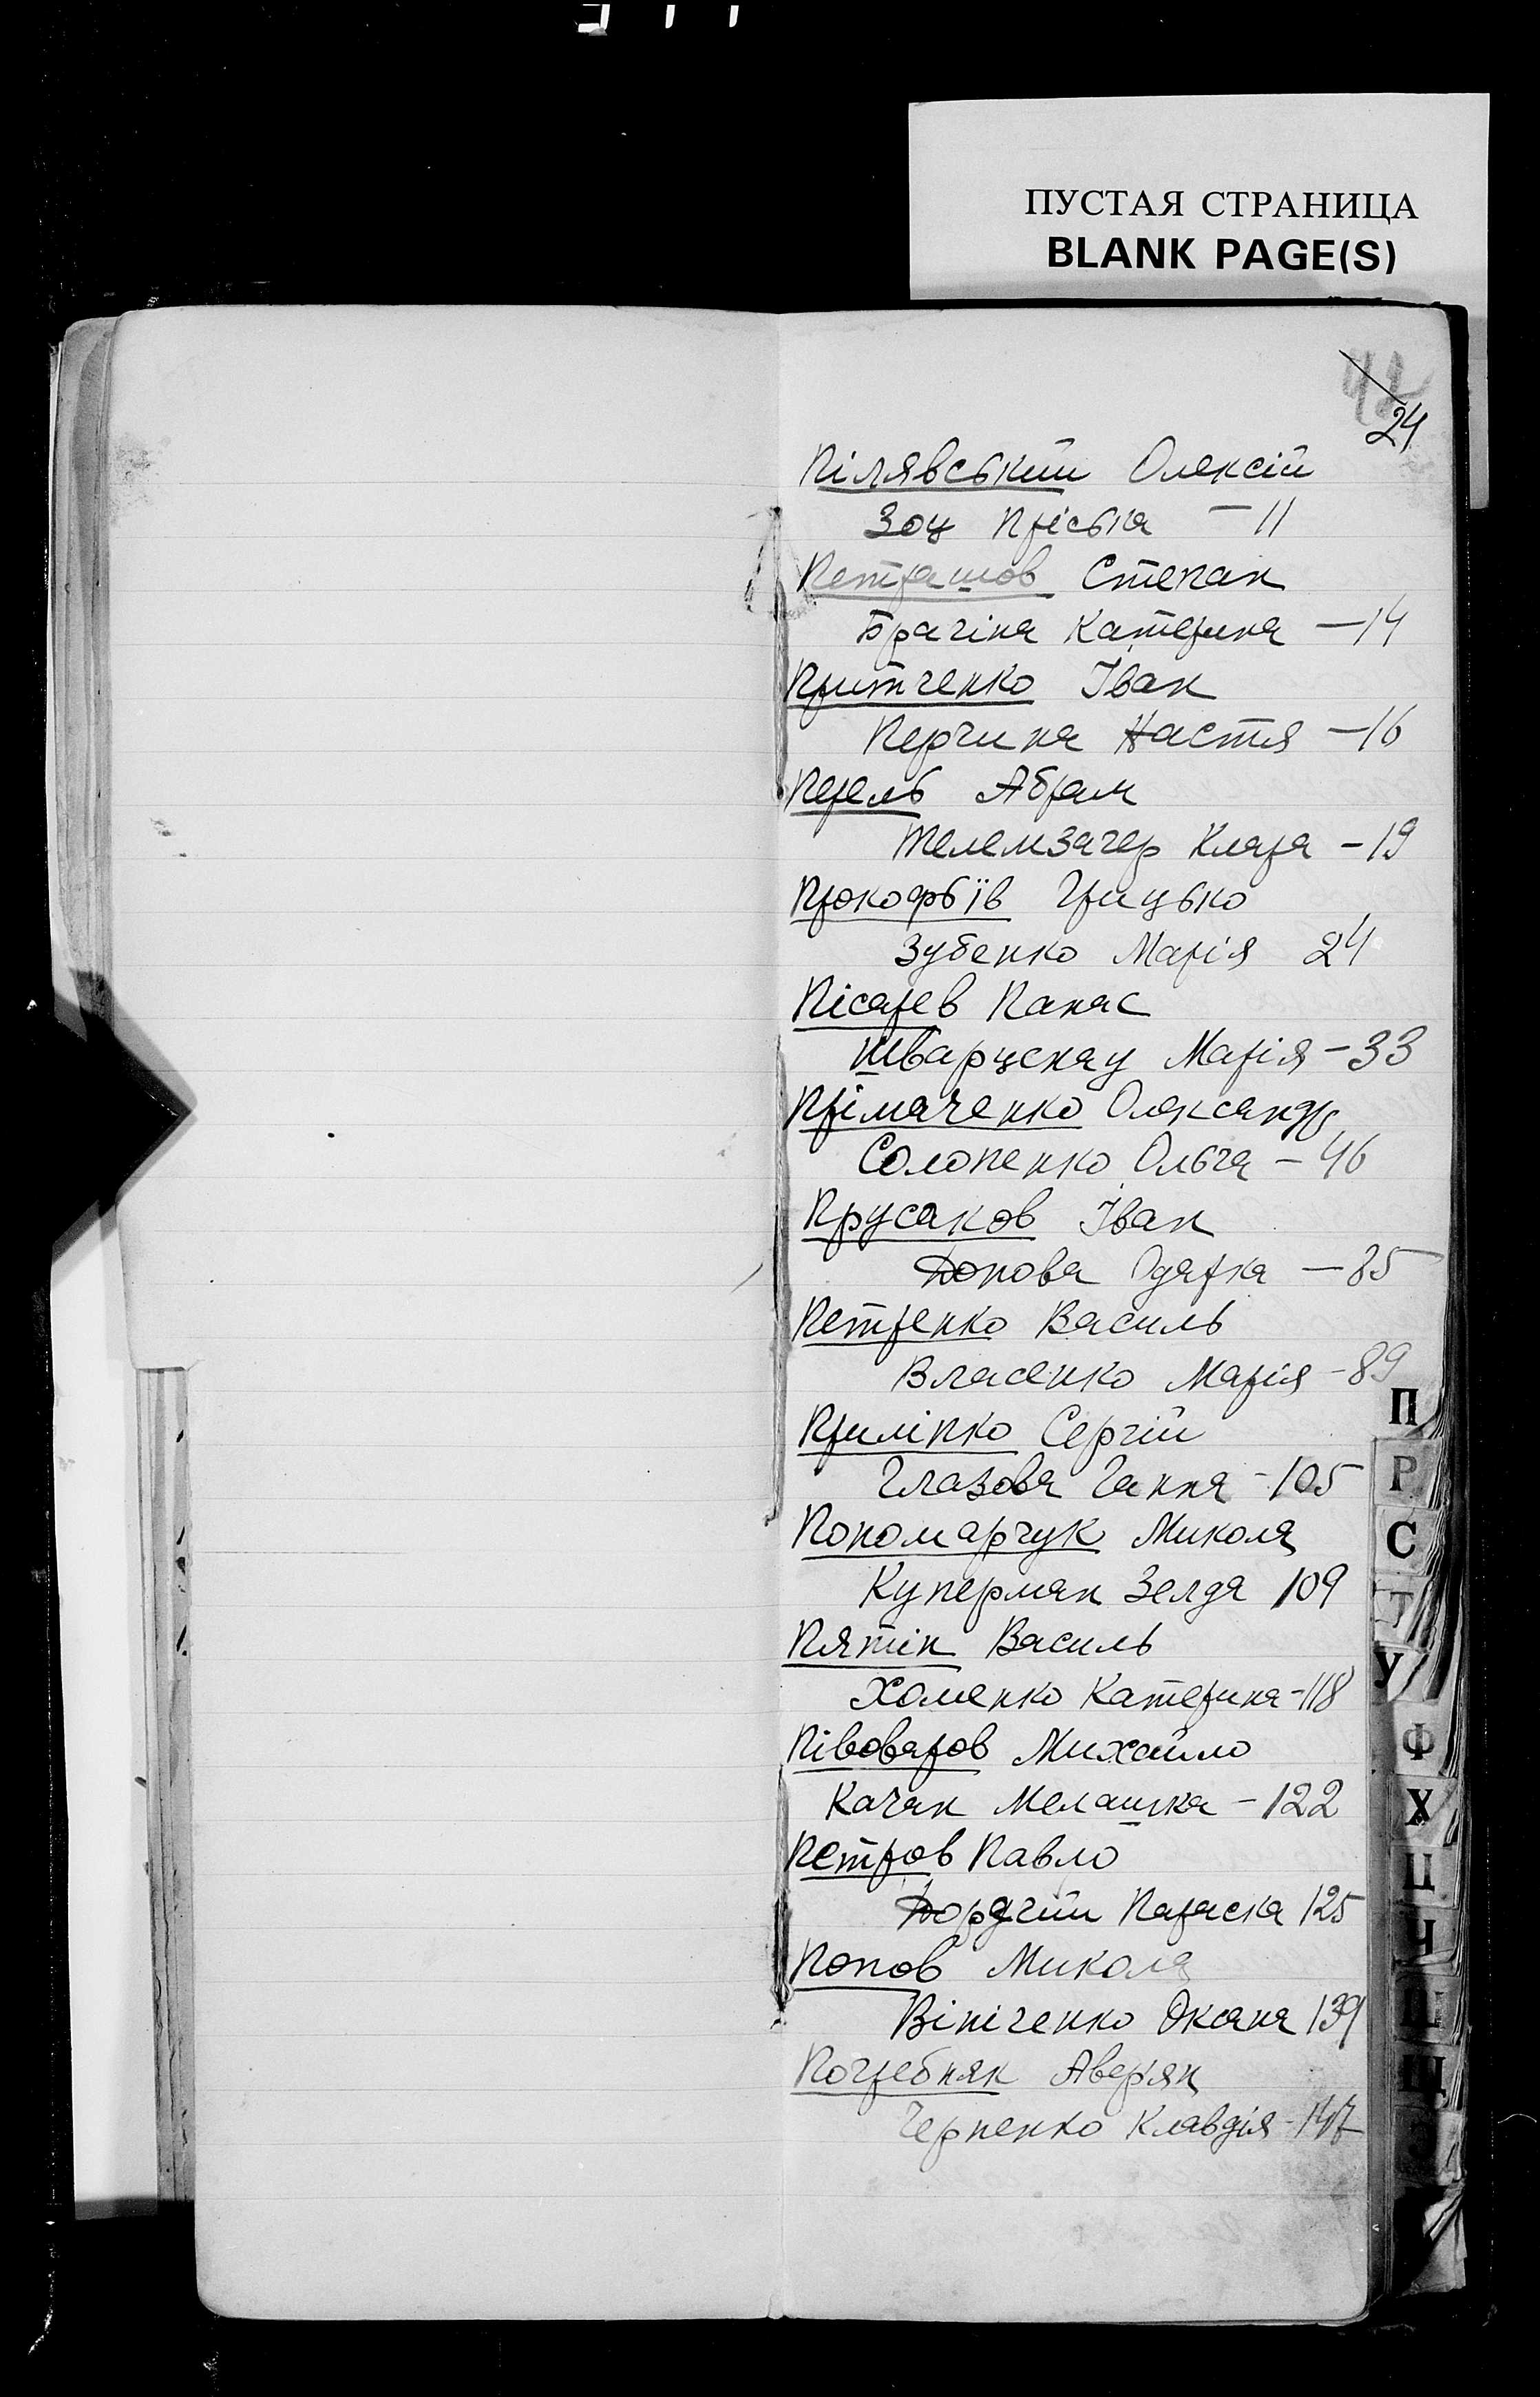 ПУСТАЯ СТРАНИЦА
BLANK PAGE(S)
42
24
Пілявський Олексій
Зоц Пріська - 11
Петрашов Степан
Брагіна Катерина - 14
Притченко Іван
Перчина Настя - 16
Перель Абрам
Клара - 19
Прокофьїв Грицько
Зубенко Марія 24
Пісарев Панас
Шварценау Марія - 33
Прімаченко Олександр
Солопенко Ольга - 46
Прусаков Іван
Попова Одарка - 85
Петренко Василь
Власенко Марія - 89
Приліпко Сергій
Глазова Ганна - 105
Пономарчук Микола
Куперман Зелда 109
Пятін Василь
Хоменко Катерина - 118
Півоваров Михайло
Качан Мелашка - 122
Петров Павло
Параска 125
Попов Микола
Вініченко Оксана 139
Погребняк Аверян
Черненко Клавдія - 147
П
Р
С
Т
У
Ф
Х
Ц
Ч
Ш
Щ